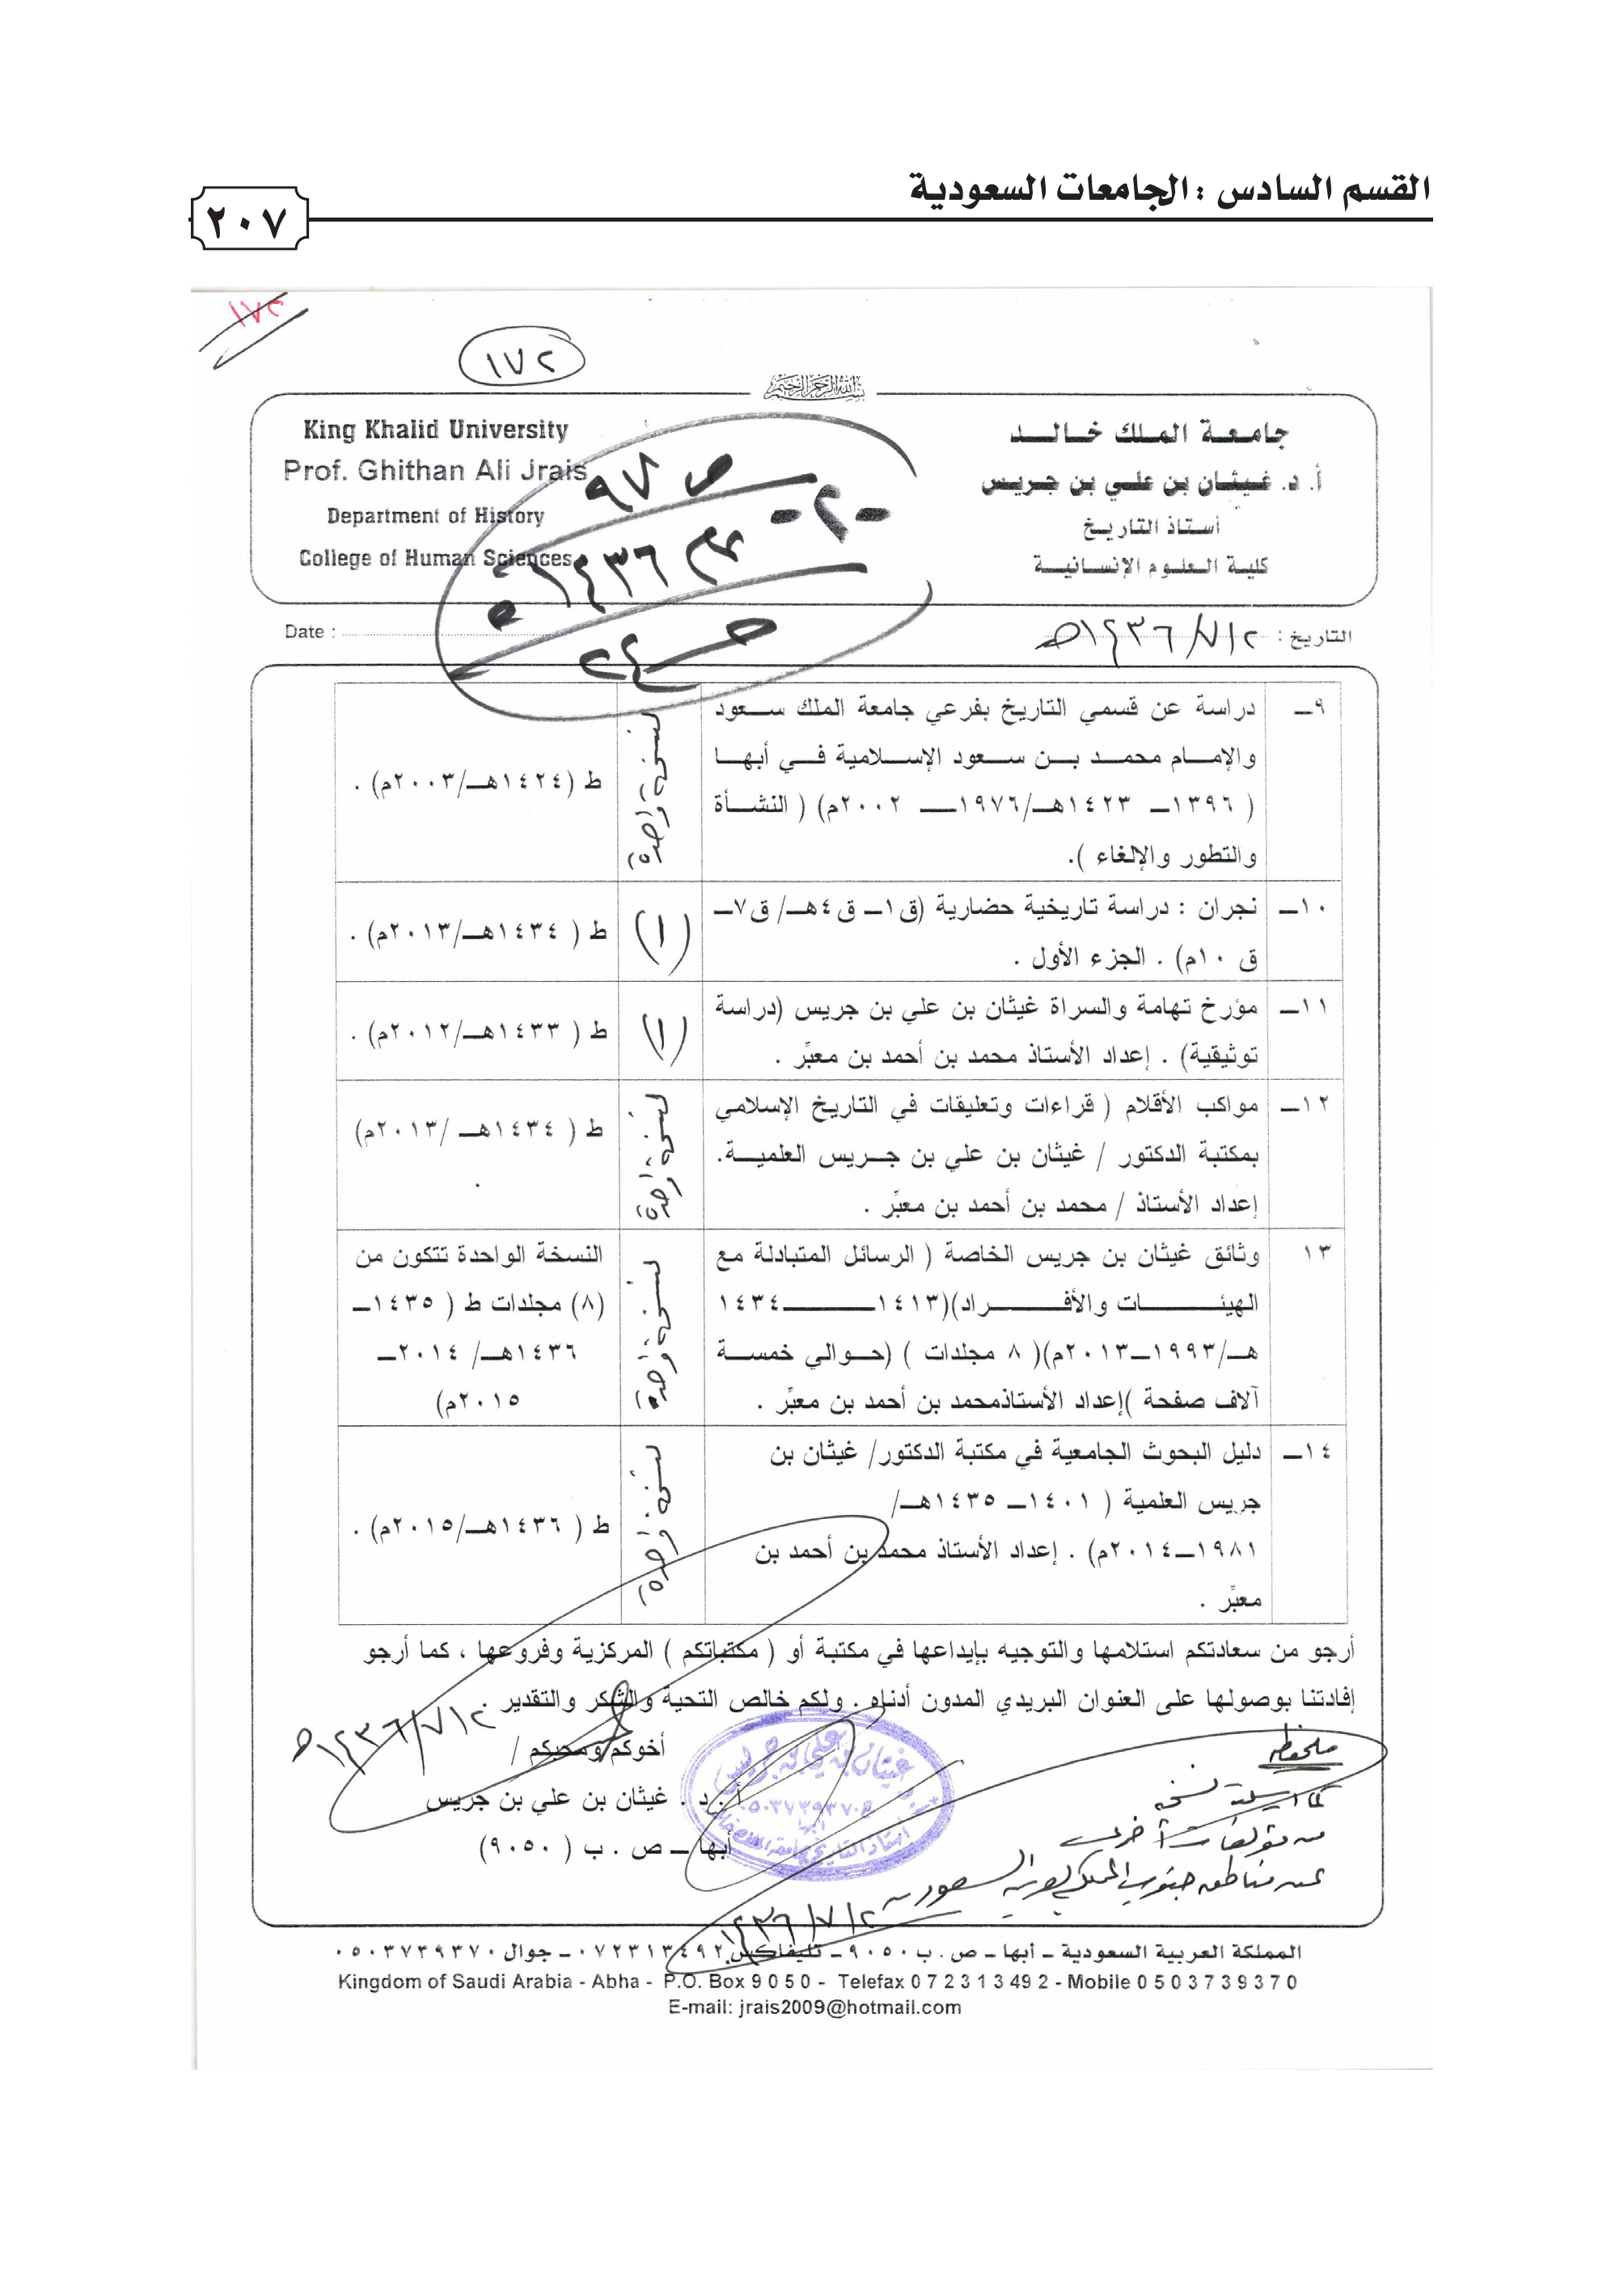 القسم السادس : الجامعات السعودية
٢٠٧
١٧٢
١٧٢
بسم الله الرحمن الرحيم
King Khalid University
Prof. Ghithan Ali Jrais
Department of History
College of Human Sciences
جامعة الملك خالد
أ. د. غيثان بن علي بن جريس
أستاذ التاريخ
كلية العلوم الإنسانية
ص ٩٧
-٢-
١٤٣٦هـ
Date :
التاريخ : ١٤٣٦/٧/٢هـ
٩ــ
دراسة عن قسمي التاريخ بفرعي جامعة الملك سعود
والإمام محمد بن سعود الإسلامية في أبها
( ١٣٩٦ــ ١٤٢٣هــ/١٩٧٦ــ ٢٠٠٢م) ( النشأة
والتطور والإلغاء ).
نسخة واحدة
ط (١٤٢٤هــ/٢٠٠٣م) .
١٠ــ
نجران : دراسة تاريخية حضارية (ق١ــ ق٤هــ/ ق٧ــ
ق ١٠م) . الجزء الأول .
(١)
ط ( ١٤٣٤هــ/٢٠١٣م) .
١١ــ
مؤرخ تهامة والسراة غيثان بن علي بن جريس (دراسة
توثيقية) . إعداد الأستاذ محمد بن أحمد بن معبِّر .
(١)
ط ( ١٤٣٣هــ/٢٠١٢م) .
١٢ــ
مواكب الأقلام ( قراءات وتعليقات في التاريخ الإسلامي
بمكتبة الدكتور / غيثان بن علي بن جريس العلمية.
إعداد الأستاذ / محمد بن أحمد بن معبِّر .
نسخة واحدة
ط ( ١٤٣٤هــ /٢٠١٣م)
.
١٣
وثائق غيثان بن جريس الخاصة ( الرسائل المتبادلة مع
الهيئات والأفراد)(١٤١٣ــ١٤٣٤
هــ/١٩٩٣ــ٢٠١٣م)( ٨ مجلدات ) (حوالي خمسة
آلاف صفحة )إعداد الأستاذمحمد بن أحمد بن معبِّر .
نسخة واحدة
النسخة الواحدة تتكون من
(٨) مجلدات ط ( ١٤٣٥ــ
١٤٣٦هــ/ ٢٠١٤ــ
٢٠١٥م)
١٤ــ
دليل البحوث الجامعية في مكتبة الدكتور/ غيثان بن
جريس العلمية ( ١٤٠١ــ ١٤٣٥هــ/
١٩٨١ــ٢٠١٤م) . إعداد الأستاذ محمد بن أحمد بن
معبِّر .
نسخة واحدة
ط ( ١٤٣٦هــ/٢٠١٥م) .
أرجو من سعادتكم استلامها والتوجيه بإيداعها في مكتبة أو ( مكتباتكم ) المركزية وفروعها ، كما أرجو
إفادتنا بوصولها على العنوان البريدي المدون أدناه . ولكم خالص التحية والشكر والتقدير .
١٤٣٦/٧/٢هـ
أخوكم ومحبكم /
أ . د . غيثان بن علي بن جريس
أبها ــ ص . ب ( ٩٠٥٠)
غيثان بن علي بن جريس
٠٥٠٣٧٣٩٣٧٠
أبها
ملحوظة
كما أرسلت نسخة
من مؤلفات أخرى
عن مناطق جنوب المملكة العربية السعودية
١٤٣٦/٧/٢
المملكة العربية السعودية ــ أبها ــ ص . ب ٩٠٥٠ ــ تليفاكس ٠٧٢٣١٣٤٩٢ ــ جوال ٠٥٠٣٧٣٩٣٧٠
Kingdom of Saudi Arabia - Abha - P.O. Box 9050 - Telefax 072313492 - Mobile 0503739370
E-mail: jrais2009@hotmail.com